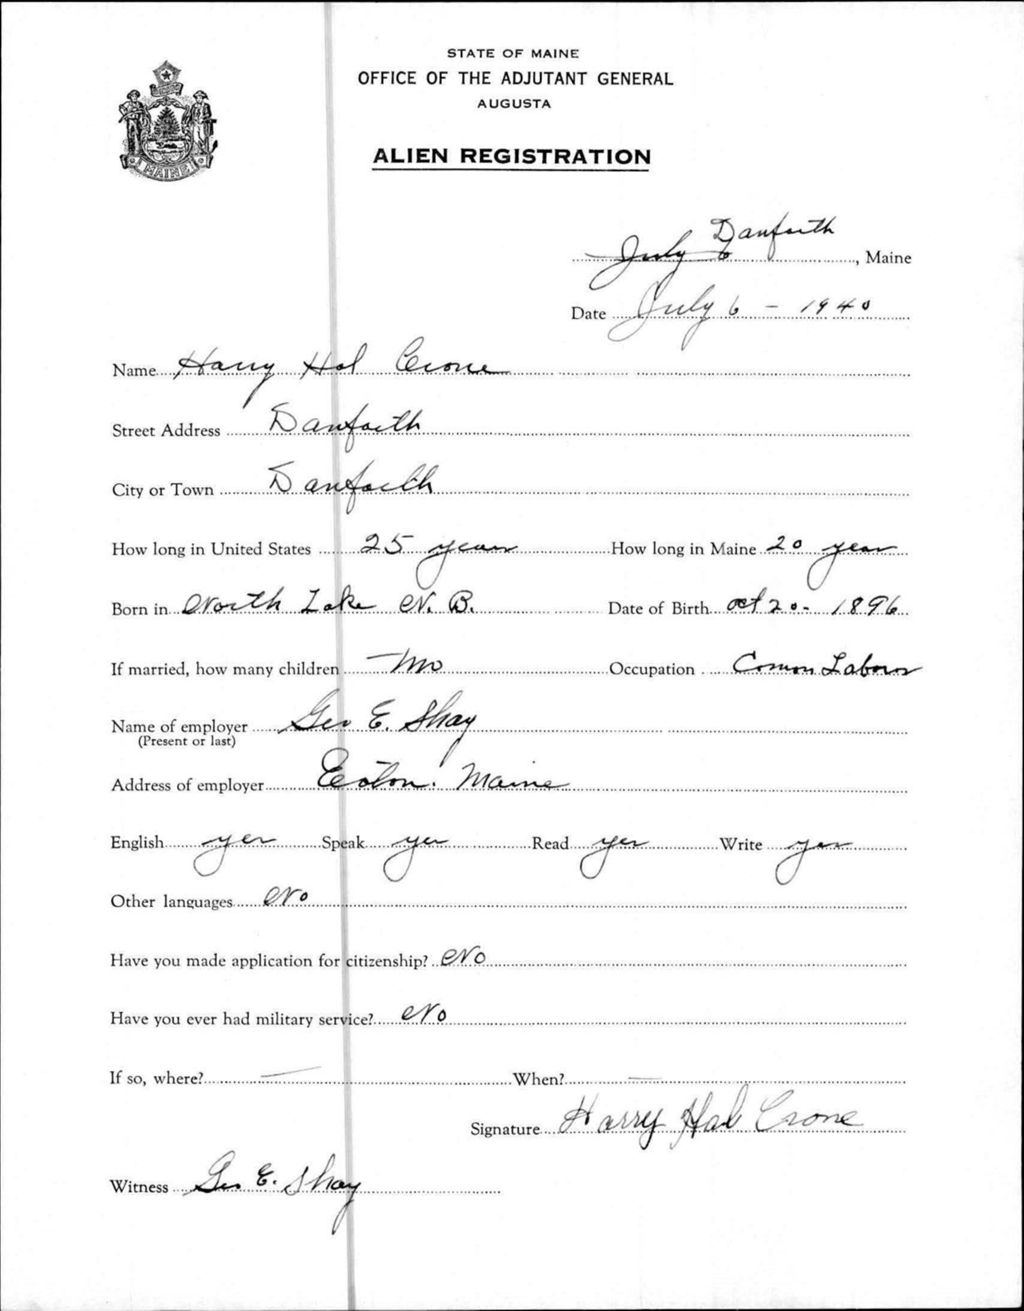 STATE OF MAINE
OFFICE OF THE ADJUTANT GENERAL
AUGUSTA
ALIEN REGISTRATION
MAINE
July 6 Danforth, Maine
Date July 6 - 1940
Name Harry Hal Crone
Street Address Danforth
City or Town Danforth
How long in United States 25 years How long in Maine 20 year
Born in North Lake N. B. Date of Birth Oct 20 - 1896
If married, how many children No Occupation Comon Laborer
Name of employer Geo E. Shay
(Present or last)
Address of employer Eaton. Maine
English yes Speak yes Read yes Write yes
Other languages No
Have you made application for citizenship? No
Have you ever had military service? No
If so, where? — When? —
Signature Harry Hal Crone
Witness Geo E. Shay